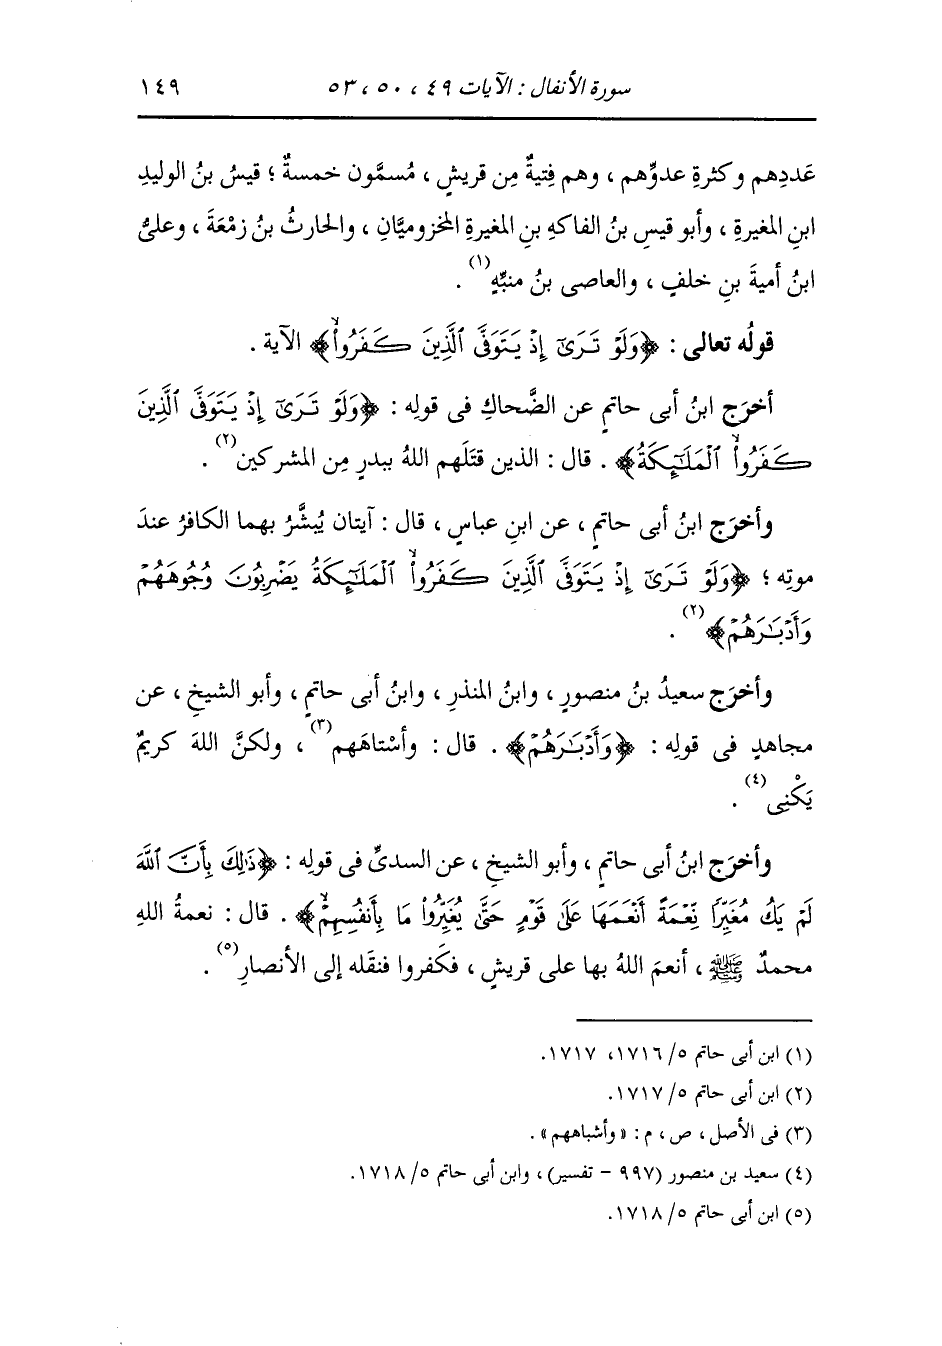 سورة الأنفال : الآيات ٤٩ ، ٥٠ ، ٥٣ ١٤٩
عَددِهم وكثرةِ عدوِّهم ، وهم فِتيةٌ مِن قريشٍ ، مُسمَّون خمسةٌ ؛ قيسُ بنُ الوليدِ
ابنِ المغيرةِ ، وأبو قيسِ بنُ الفاكهِ بنِ المغيرةِ المخزوميَّانِ ، والحارثُ بنُ زمْعَةَ ، وعلىُّ
ابنُ أميةَ بنِ خلفٍ ، والعاصى بنُ منبِّهٍ(١) .
قولُه تعالى : ﴿وَلَوْ تَرَىٰٓ إِذْ يَتَوَفَّى ٱلَّذِينَ كَفَرُواْۙ﴾ الآية .
أخرَج ابنُ أبى حاتمٍ عن الضَّحاكِ فى قولِه : ﴿وَلَوْ تَرَىٰٓ إِذْ يَتَوَفَّى ٱلَّذِينَ
كَفَرُواْۙ ٱلْمَلَٰٓئِكَةُ﴾ . قال : الذين قتَلَهم اللهُ ببدرٍ مِن المشركين(٢) .
وأخرَج ابنُ أبى حاتمٍ ، عن ابنِ عباسٍ ، قال : آيتان يُبشَّرُ بهما الكافرُ عندَ
موتِه ؛ ﴿وَلَوْ تَرَىٰٓ إِذْ يَتَوَفَّى ٱلَّذِينَ كَفَرُواْۙ ٱلْمَلَٰٓئِكَةُ يَضْرِبُونَ وُجُوهَهُمْ
وَأَدْبَٰرَهُمْ﴾(٢) .
وأخرَج سعيدُ بنُ منصورٍ ، وابنُ المنذرِ ، وابنُ أبى حاتمٍ ، وأبو الشيخِ ، عن
مجاهدٍ فى قولِه : ﴿وَأَدْبَٰرَهُمْ﴾ . قال : وأسْتاهَهم(٣) ، ولكنَّ اللهَ كريمٌ
يَكْنِى(٤) .
وأخرَج ابنُ أبى حاتمٍ ، وأبو الشيخِ ، عن السدىِّ فى قولِه : ﴿ذَٰلِكَ بِأَنَّ ٱللَّهَ
لَمْ يَكُ مُغَيِّرًا نِّعْمَةً أَنْعَمَهَا عَلَىٰ قَوْمٍ حَتَّىٰ يُغَيِّرُواْ مَا بِأَنفُسِهِمْۙ﴾ . قال : نعمةُ اللهِ
محمدٌ ﷺ ، أنعمَ اللهُ بها على قريشٍ ، فكَفروا فنقَله إلى الأنصارِ(٥) .
(١) ابن أبى حاتم ٥/ ١٧١٦، ١٧١٧.
(٢) ابن أبى حاتم ٥/ ١٧١٧.
(٣) فى الأصل ، ص ، م : «وأشباههم» .
(٤) سعيد بن منصور (٩٩٧ - تفسير) ، وابن أبى حاتم ٥/ ١٧١٨.
(٥) ابن أبى حاتم ٥/ ١٧١٨.